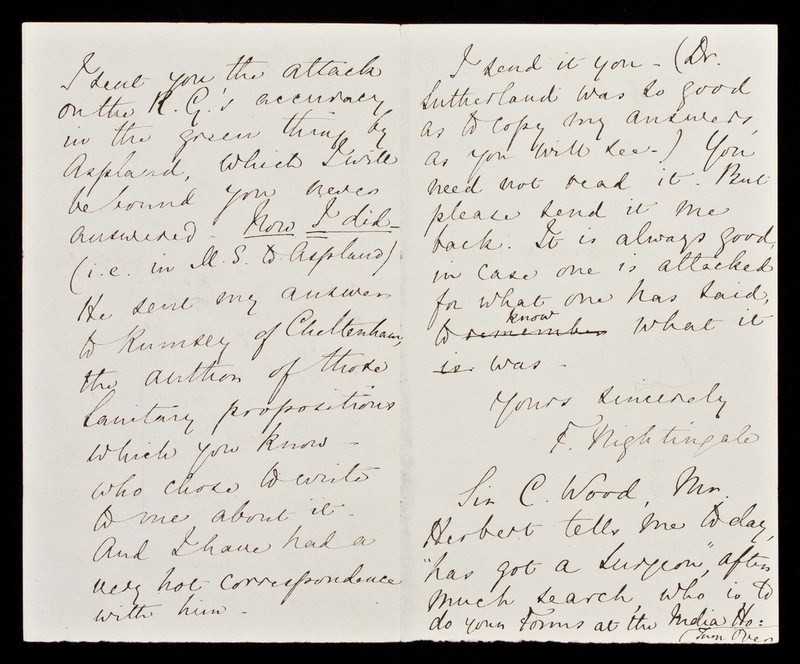 I sent you the attack
on the R.G.'s accuracy
in the green thing by
Aspland, which I will
be bound you never
answered - Now I did -
(i.e. in M.S. to Aspland)
He sent my answer
to Rumsey of Cheltenham,
the author of those
Sanitary propositions
which you know -
who chose to write
to me about it -
And I have had a
very hot correspondence
with him -
I send it you - (Dr.
Sutherland was so good
as to copy my answers,
as you will see -) You
need not read it. But
please send it me
back. It is always good,
in case one is attacked
for what one has said,
know
to remember what it
is was -
Yours sincerely
F. Nightingale
Sir C. Wood, Mr.
Herbert tells me to day,
"has got a Surgeon", after
much search, who is to
do your Forms at the India Ho:
(Turn Over